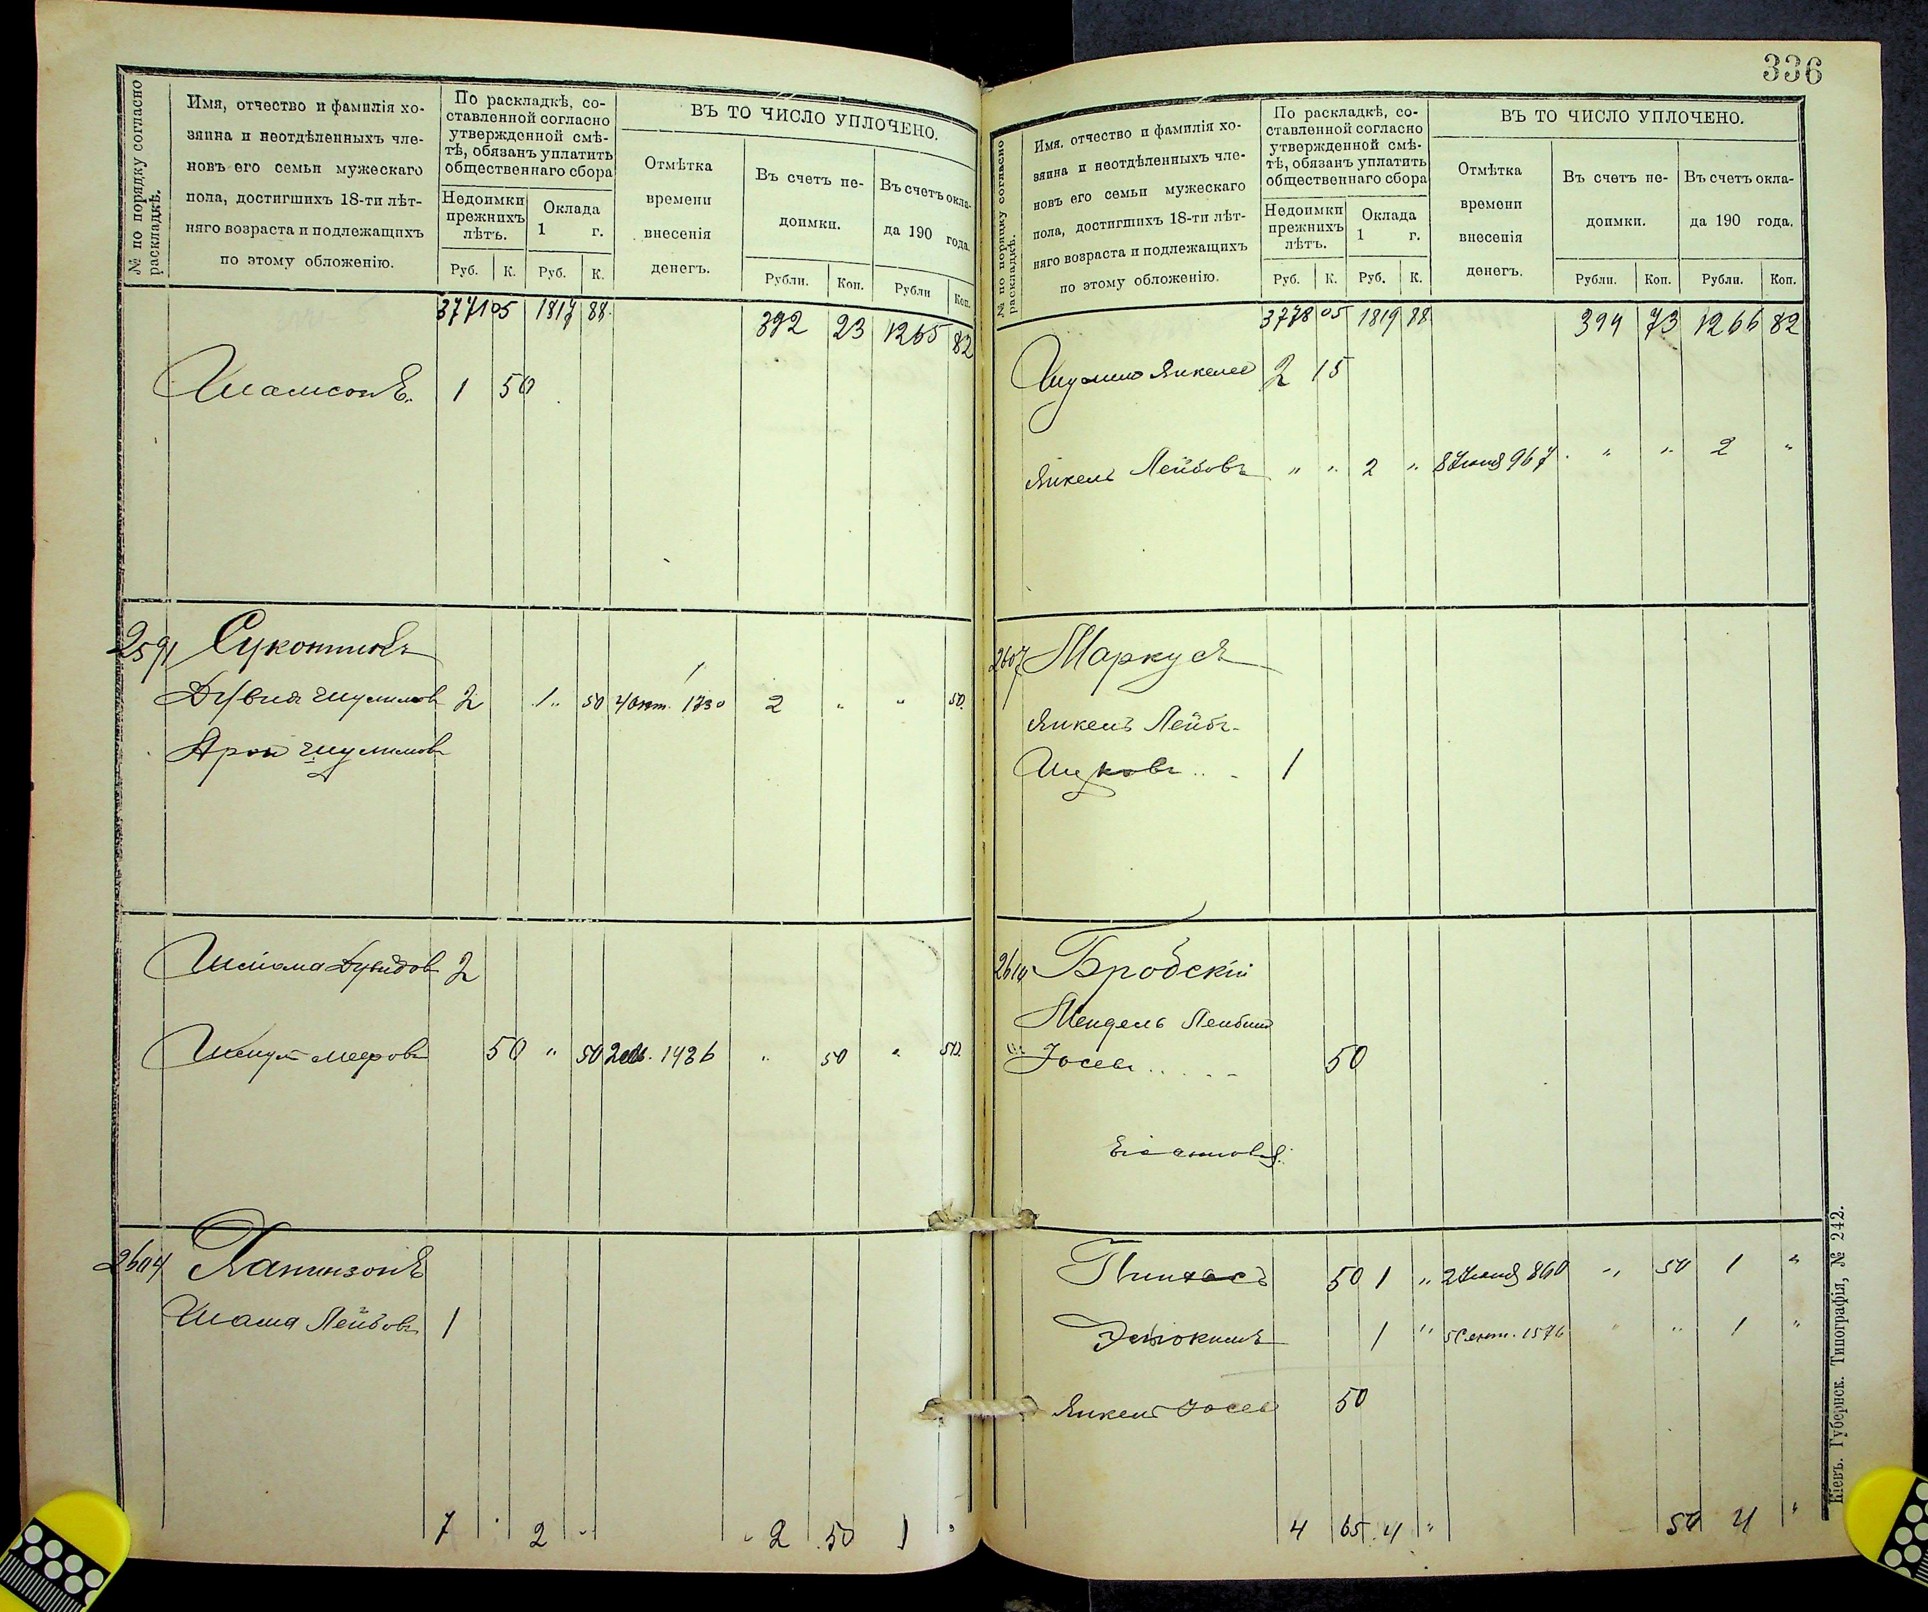 336
№ по порядку согласно раскладкѣ.
Имя, отчество и фамилія хо-
зяина и неотдѣленныхъ чле-
новъ его семьи мужескаго
пола, достигшихъ 18-ти лѣт-
няго возраста и подлежащихъ
по этому обложенію.
По раскладкѣ, со-
ставленной согласно
утвержденной смѣ-
тѣ, обязанъ уплатить
общественнаго сбора
Недоимки
прежнихъ
лѣтъ.
Оклада
1 г.
Руб. К. Руб. К.
ВЪ ТО ЧИСЛО УПЛОЧЕНО.
Отмѣтка
времени
внесенія
денегъ.
Въ счетъ не-
доимки.
Въ счетъ окла-
да 190 года.
Рубли. Коп. Рубли Коп.
3771 05 1817 88 392 23 1265 82
Шамсонъ. 1 50
2591
Дувид Шулимов 2 1 " 50 4 Окт. 1730 2 " " 50
Арон Шулимов
Дувидов 2
Мееров 50 " 50 1436 " 50 " 50
2604 Ханинзонъ
Лейбов 1
7 2 " 2 50 1 "
№ по порядку согласно раскладкѣ.
Имя, отчество и фамилія хо-
зяина и неотдѣленныхъ чле-
новъ его семьи мужескаго
пола, достигшихъ 18-ти лѣт-
няго возраста и подлежащихъ
по этому обложенію.
По раскладкѣ, со-
ставленной согласно
утвержденной смѣ-
тѣ, обязанъ уплатить
общественнаго сбора
Недоимки
прежнихъ
лѣтъ.
Оклада
1 г.
Руб. К. Руб. К.
ВЪ ТО ЧИСЛО УПЛОЧЕНО.
Отмѣтка
времени
внесенія
денегъ.
Въ счетъ не-
доимки.
Въ счетъ окла-
да 190 года.
Рубли. Коп. Рубли. Коп.
3778 05 1819 88 394 73 1266 82
Янкелев 2 15
Янкель Лейбовъ " " 2 " 8 Іюня 967 " " 2 "
2607 Маркусъ
Янкель Лейбъ-
1
2610 Бродскій
Мендель Лейбов
Іосевъ 50
Пинхасъ 50 1 " 2 Іюня 860 " 50 1 "
1 " 5 Сент. 1576 " " 1 "
Янкель Іосев 50
4 65 4 " 50 4 "
Кіевъ. Губернск. Типографія, № 242.